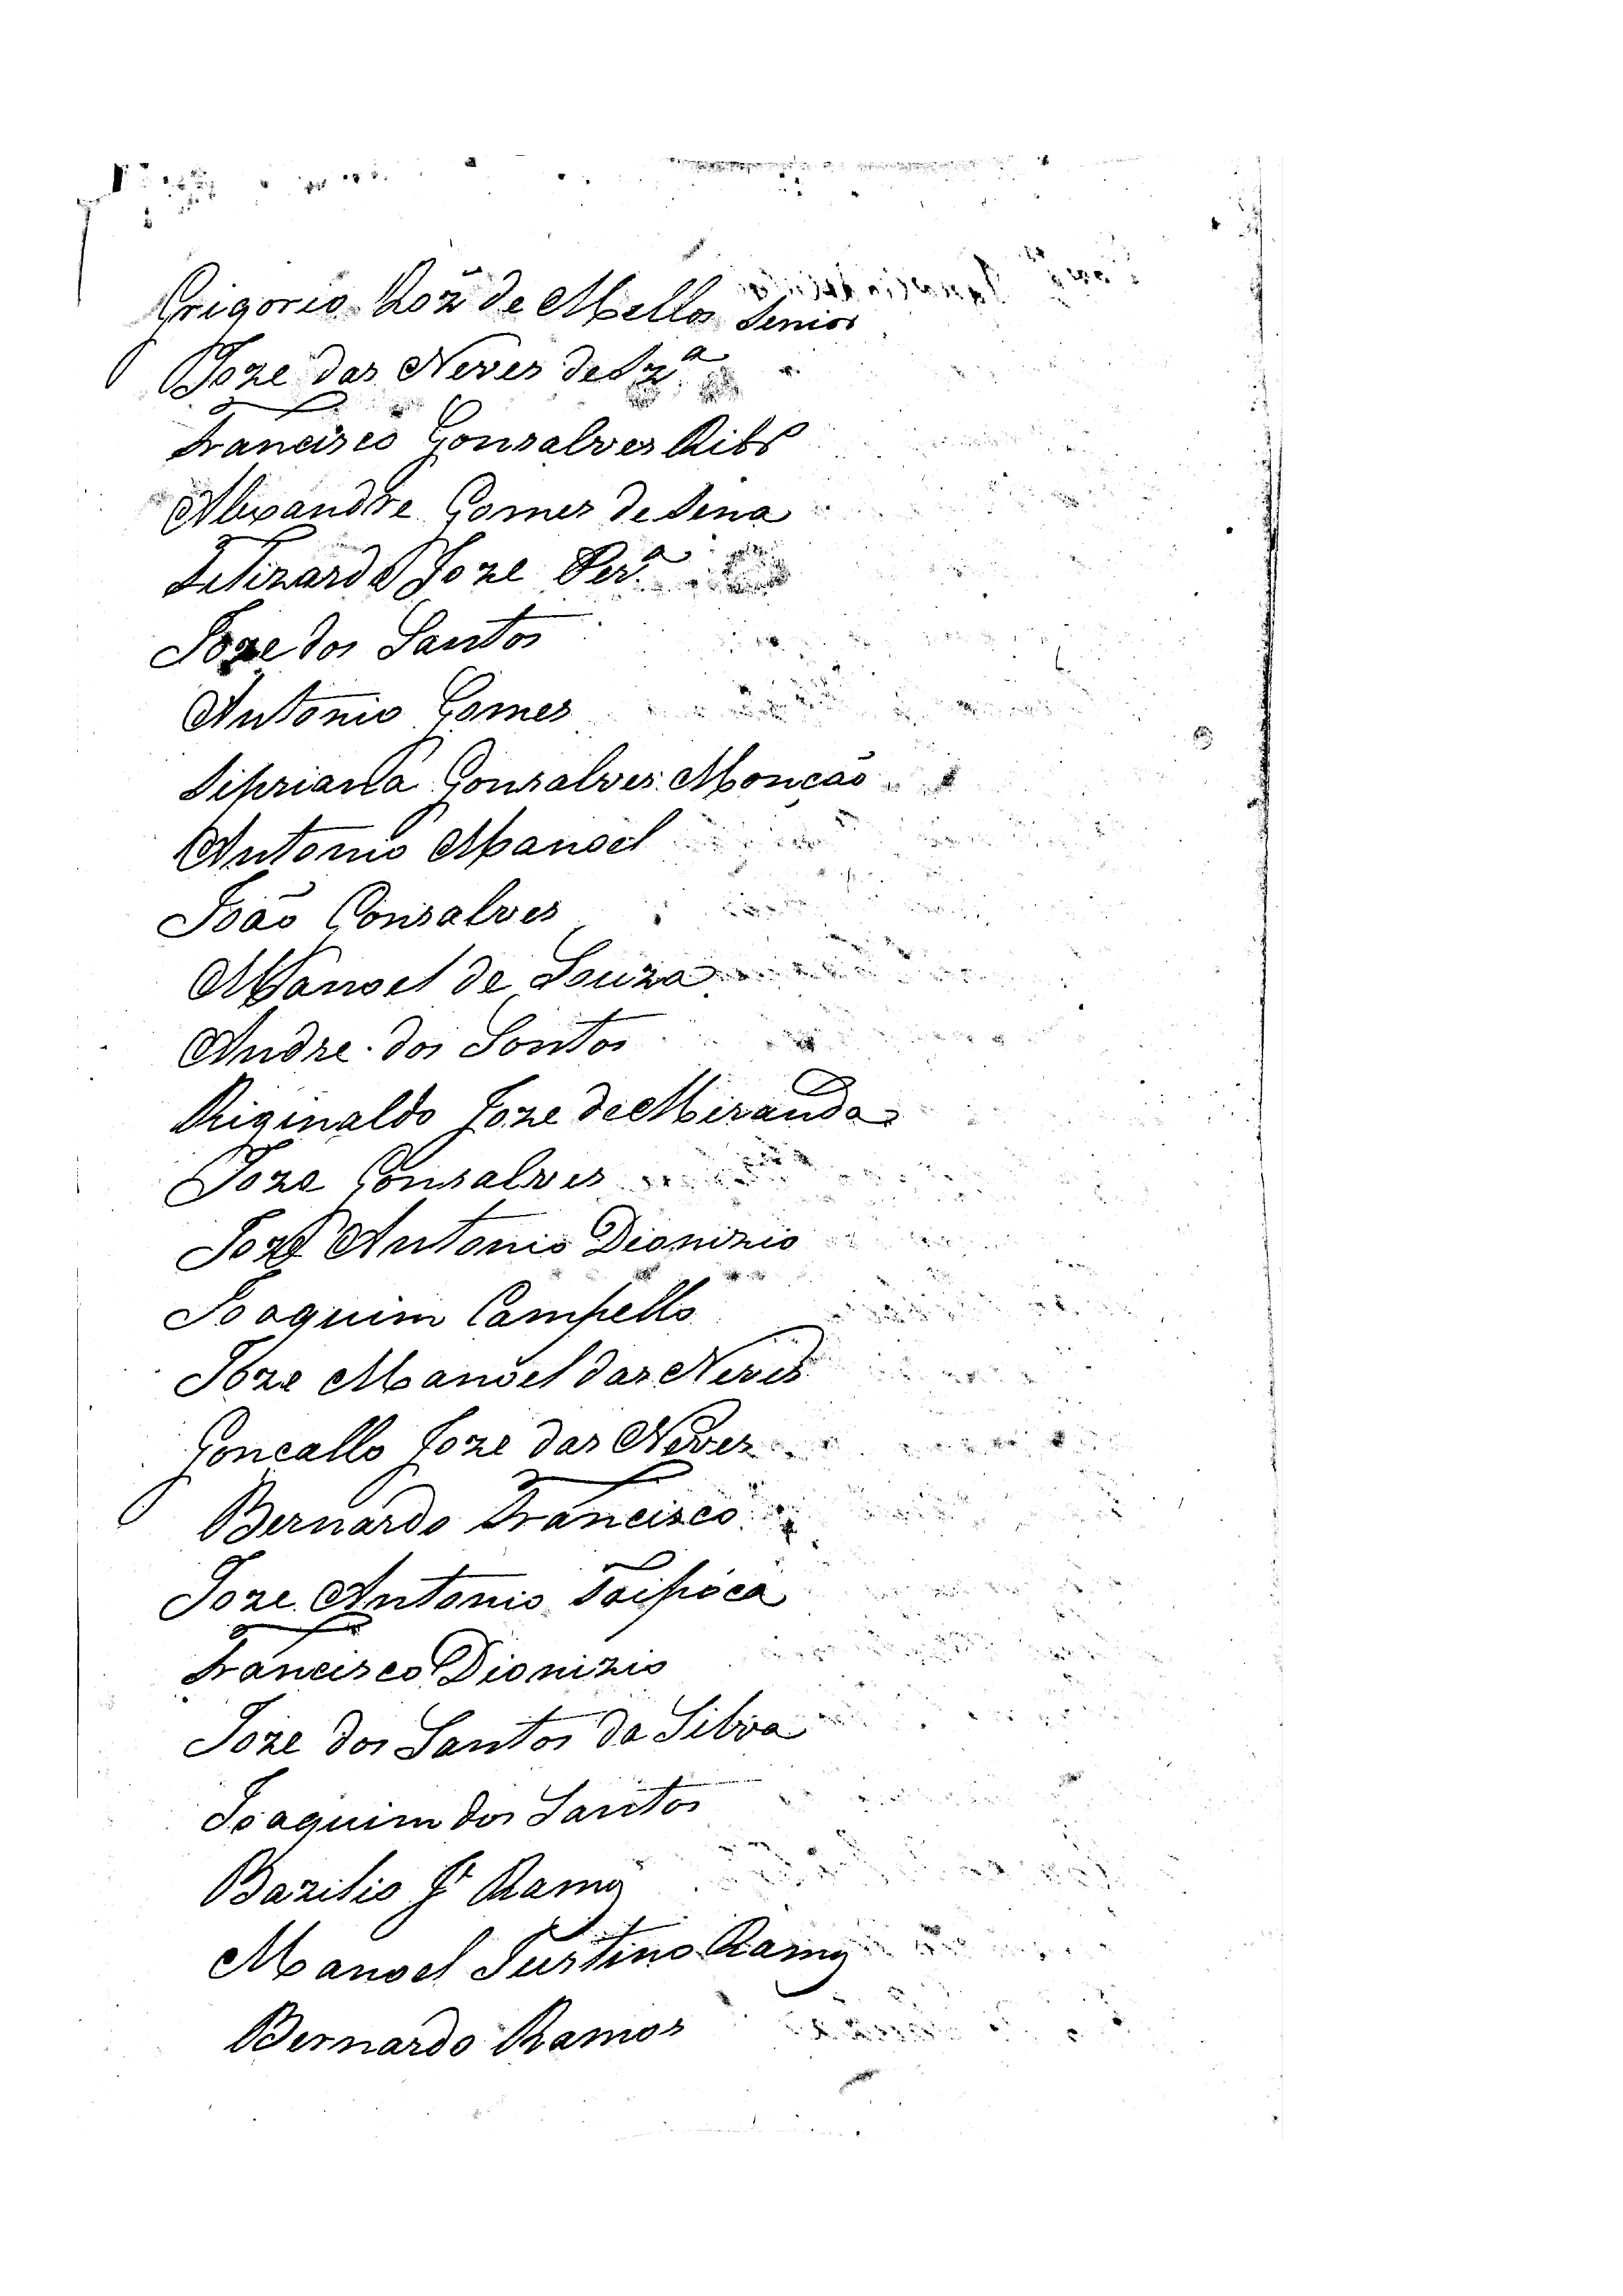 Grigorio Roz̃ de Mello Senior
Joze das Neves de Sz.ª
Francisco Gonsalves Ribr.º
Alexandre Gomes de Sena
Felizardo Joze Per.ª
Joze dos Santos
Antonio Gomes
Sipriana Gonsalves Monção
Antonio Manoel
João Gonsalves
Manoel de Souza
Andre dos Santos
Riginaldo Joze de Miranda
Joze Gonsalves
Joze Antonio Dionizio
Joaquim Campello
Joze Manoel das Neves
Goncallo Joze das Neves
Bernardo Francisco
Joze Antonio Taipóca
Francisco Dionizio
Joze dos Santos da Silva
Joaquim dos Santos
Bazilio Je Ramos
Manoel Justino Ramos
Bernardo Ramos